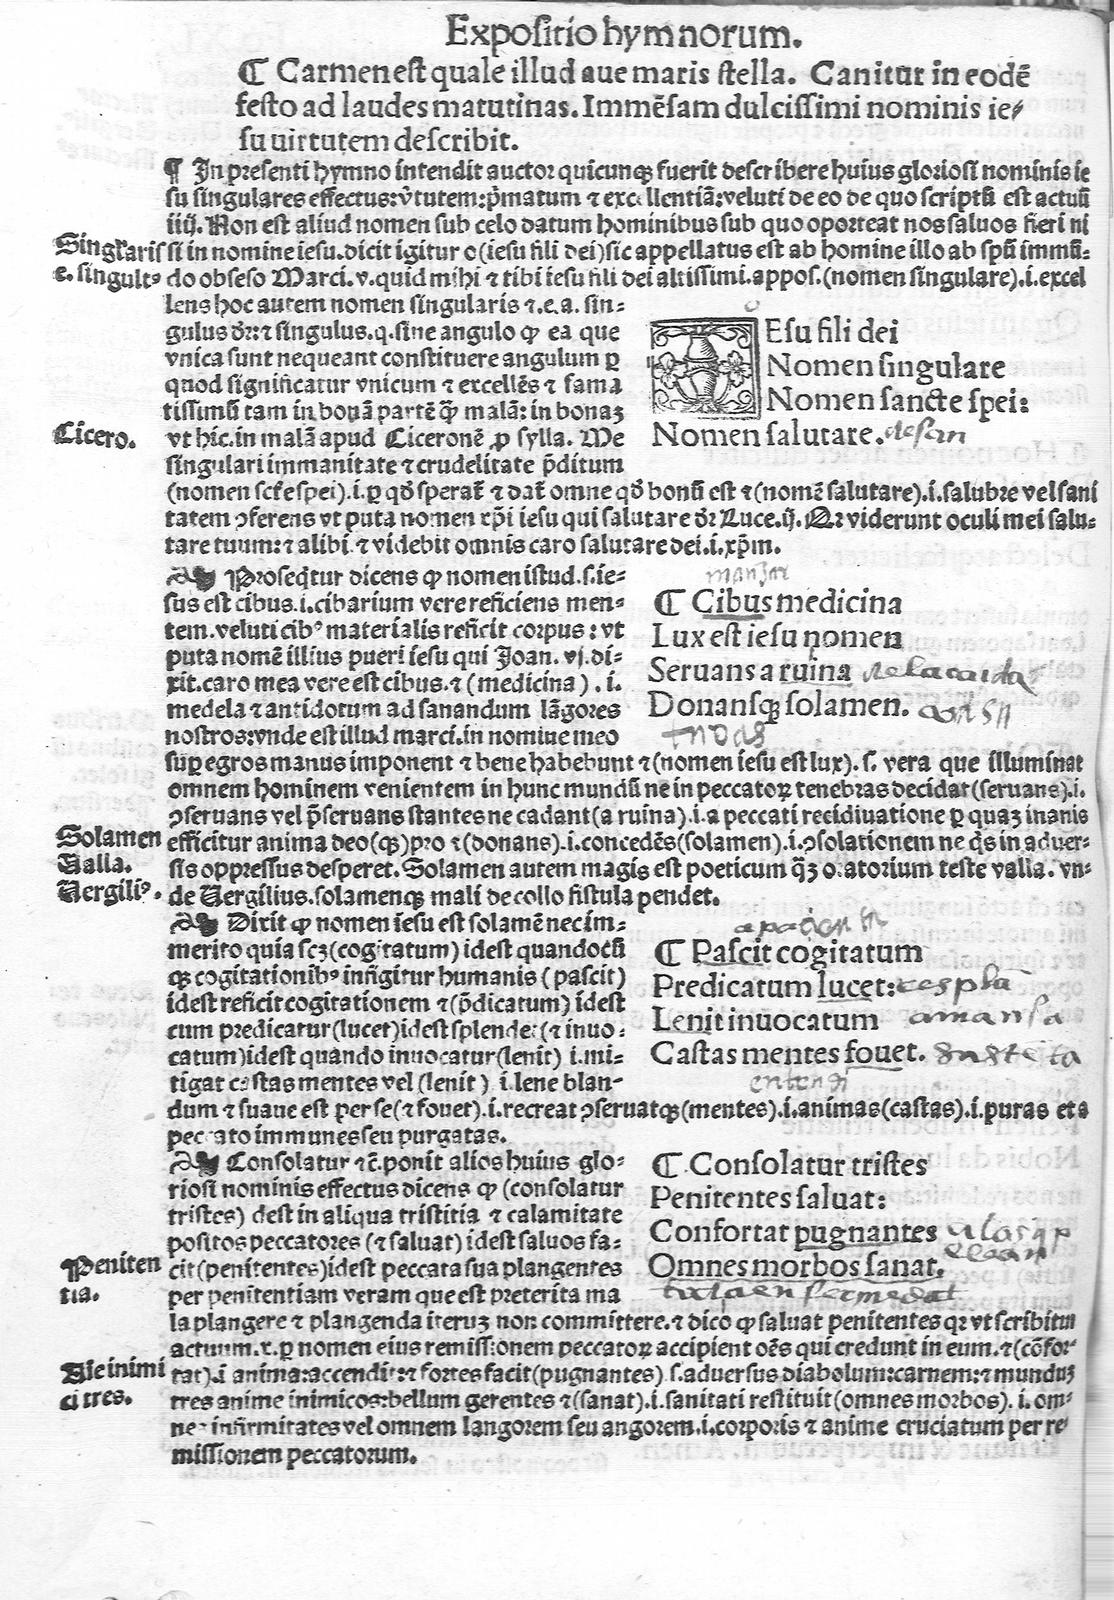 Expositio hymnorum.
¶ Carmen est quale illud aue maris stella. Canitur in eodē
festo ad laudes matutinas. Immēsam dulcissimi nominis ie/
su uirtutem describit.
¶ In presenti hymno intendit auctor quicunqꝫ fuerit describere huius gloriosi nominis ie
su singulares effectus: v̄tutem: p̄matum ⁊ excellentiā: veluti de eo de quo scriptū est actuū
iiij. Non est aliud nomen sub celo datum hominibus sub quo oporteat nos saluos fieri ni
Singl'aris
si in nomine iesu. dicit igitur o (iesu fili dei) sic appellatus est ab homine illo ab spū immū-
e. singultꝰ
do obseso Marci. v. quid mihi ⁊ tibi iesu fili dei altissimi. appos. (nomen singulare) .i. excel
lens hoc autem nomen singularis ⁊ .e. a. sin-
gulus dr̄: ⁊ singulus. q. sine angulo ꝙ ea que
vnica sunt nequeant constituere angulum ꝑ
quod significatur vnicum ⁊ excellēs ⁊ fama
tissimū tam in bonā partē q̄ꝫ malā: in bonaꝫ
Cicero.
vt hic. in malā apud Ciceronē ꝓ sylla. Me
singulari immanitate ⁊ crudelitate p̄ditum
IEsu fili dei
Nomen singulare
Nomen sancte spei:
Nomen salutare.
(nomen scte spei) .i. ꝑ qd̄ sperat̄ ⁊ dat̄ omne qd̄ bonū est ⁊ (nomē salutare) .i. salubre vel sani
tatem ꝯferens vt puta nomen xp̄i iesu qui salutare dr̄ Luce. ij. Qꝛ viderunt oculi mei salu-
tare tuum: ⁊ alibi. ⁊ videbit omnis caro salutare dei .i. xp̄m.
Proseq̄tur dicens ꝙ nomen istud .s. ie-
sus est cibus .i. cibarium vere reficiens men-
tem. veluti cibꝰ materialis reficit corpus: vt
puta nomē illius pueri iesu qui Joan. vj. di-
xit. caro mea vere est cibus. ⁊ (medicina) .i.
medela ⁊ antidotum ad sanandum lāgores
nostros: vnde est illud marci. in nomine meo
manjar
¶ Cibus medicina
Lux est iesu nomen
Seruans a ruina de la caida
Donansqꝫ solamen.
sup egros manus imponent ⁊ bene habebunt ⁊ (nomen iesu est lux) .s. vera que illuminat
omnem hominem venientem in hunc mundū ne in peccatoꝝ tenebras decidat (seruans) .i.
ꝯseruans vel p̄seruans stantes ne cadant (a ruina) .i. a peccati recidiuatione ꝑ quaꝫ inanis
Solamen
efficitur anima deo (qꝫ) pro ⁊ (donans) .i. concedēs (solamen) .i. ꝯsolationem ne q̄s in aduer-
Ualla.
sis oppressus desperet. Solamen autem magis est poeticum q̄ꝫ oratorium teste valla. vn-
Uergiliꝰ.
de Uergilius. solamenqꝫ mali de collo fistula pendet.
Dixit ꝙ nomen iesu est solamē nec im-
merito quia scꝫ (cogitatum) idest quandocū
qꝫ cogitationibꝰ infigitur humanis (pascit)
idest reficit cogitationem ⁊ (p̄dicatum) idest
cum predicatur (lucet) idest splendet (⁊ inuo-
catum) idest quando inuocatur (lenit) .i. mi-
tigat castas mentes vel (lenit) .i. lene blan-
¶ Pascit cogitatum
Predicatum lucet:
Lenit inuocatum amansa
Castas mentes fouet.
dum ⁊ suaue est per se (⁊ fouet) .i. recreat ꝯseruatqꝫ (mentes) .i. animas (castas) .i. puras et a
peccato immunes seu purgatas.
Consolatur ⁊c̄. ponit alios huius glo-
riosi nominis effectus dicens ꝙ (consolatur
tristes) idest in aliqua tristitia ⁊ calamitate
positos peccatores (⁊ saluat) idest saluos fa-
Peniten
cit (penitentes) idest peccata sua plangentes
tia.
per penitentiam veram que est preterita ma
¶ Consolatur tristes
Penitentes saluat:
Confortat pugnantes
Omnes morbos sanat.
toda enfermedat
la plangere ⁊ plangenda iteruꝫ non committere. ⁊ dico ꝙ saluat penitentes qꝛ vt scribitur
actuum. x. ꝑ nomen eius remissionem peccatoꝝ accipient oēs qui credunt in eum. ⁊ (cōfor-
Aie inimi
tat) .i. anima: accendit: ⁊ fortes facit (pugnantes) .s. aduersus diabolum: carnem: ⁊ munduꝫ
ci tres.
tres anime inimicos: bellum gerentes ⁊ (sanat) .i. sanitati restituit (omnes morbos) .i. om-
nes infirmitates vel omnem langorem seu angorem .i. corporis ⁊ anime cruciatum per re
missionem peccatorum.